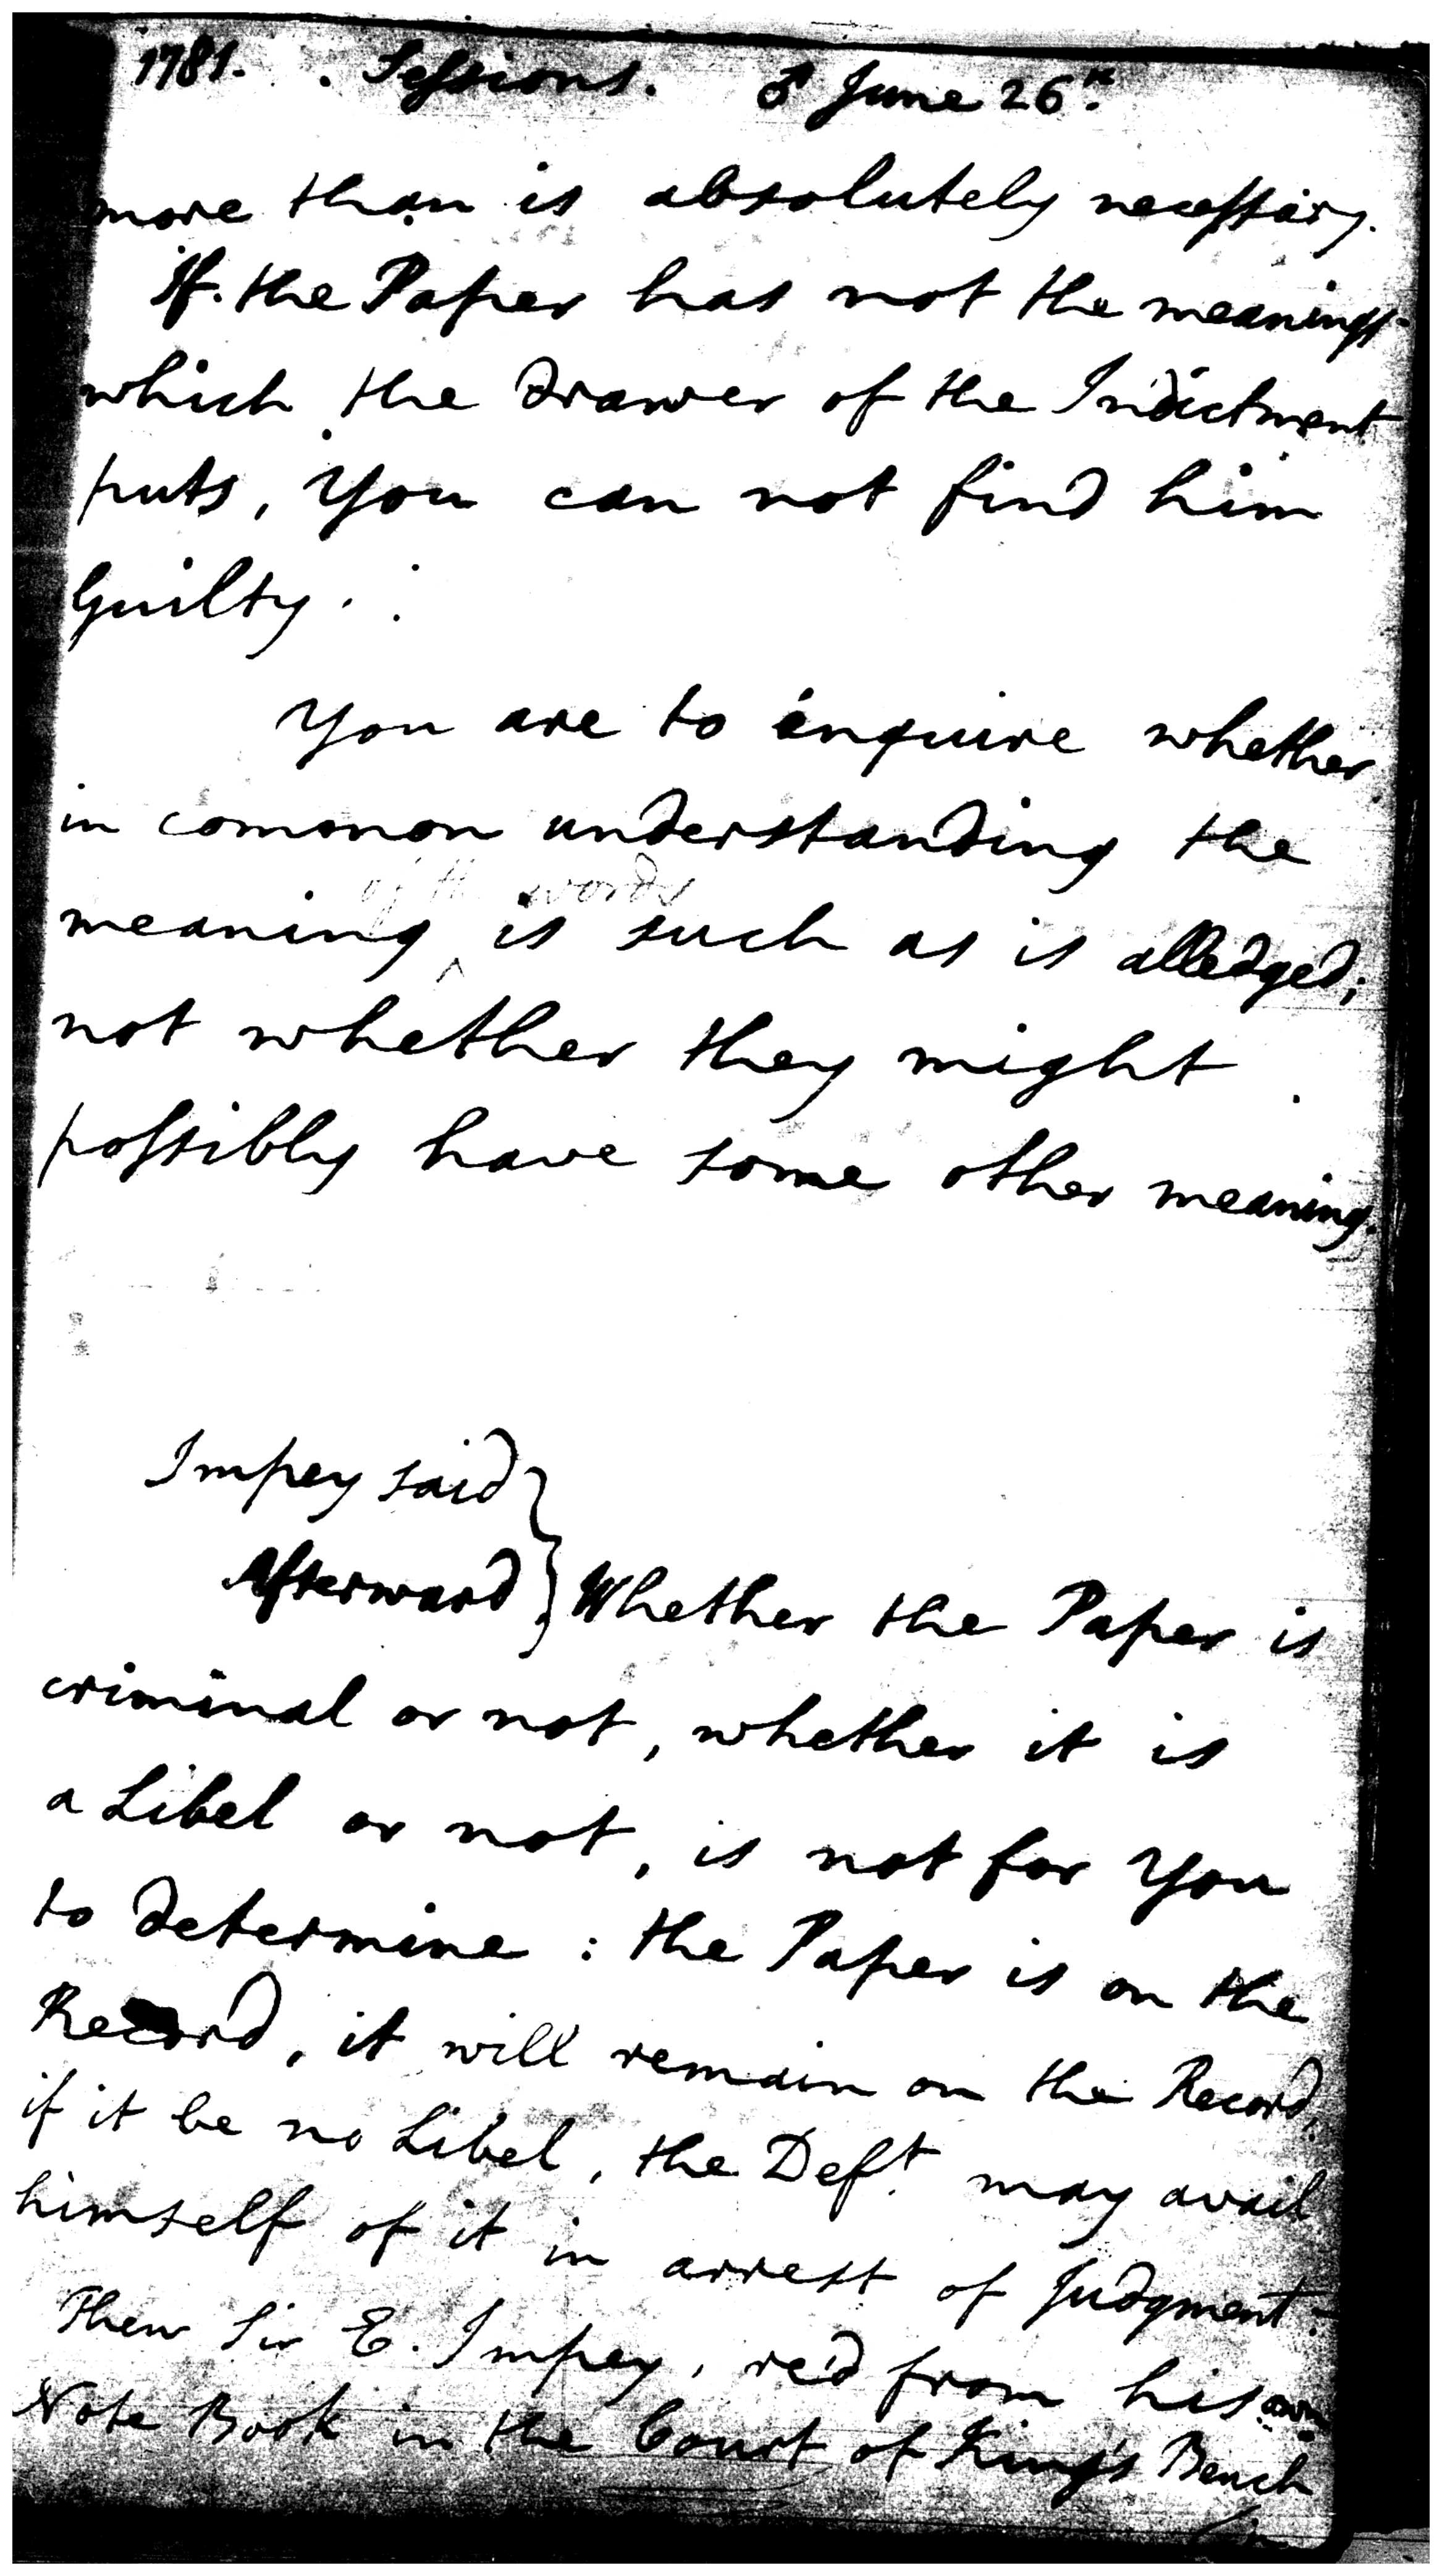 1781. . Sessions. ♂ June 26th.
more than is absolutely necessary.
If the Paper has not the meanings
which the Drawer of the Indictment
puts, You can not find him
Guilty.
You are to enquire whether
in common understanding the
of the words
meaning ^ is such as is alledged;
not whether they might
possibly have some other meaning.
Impey said
Afterward } Whether the Paper is
criminal or not, whether it is
a Libel or not, is not for You
to determine : the Paper is on the
Record, it will remain on the Record,
if it be no Libel, the Deft. may avail
himself of it in arrest of Judgment:
Then Sir E. Impey, re'd from his own
Note Book in the Court of King's Bench